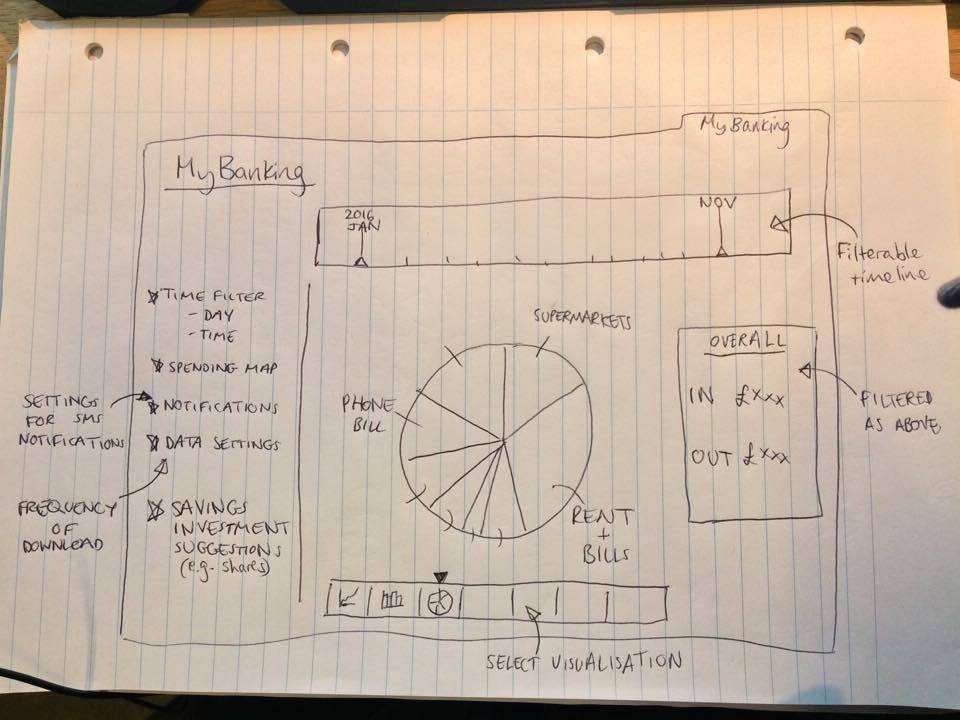 My Banking
My Banking
2016
JAN
NOV
Filterable
timeline
TIME FILTER
- DAY
- TIME
SPENDING MAP
NOTIFICATIONS
DATA SETTINGS
SAVINGS
INVESTMENT
SUGGESTIONS
(e.g. shares)
SETTINGS
FOR SMS
NOTIFICATIONS
FREQUENCY
OF
DOWNLOAD
SUPERMARKETS
PHONE
BILL
RENT
+
BILLS
OVERALL
IN £xxx
OUT £xxx
FILTERED
AS ABOVE
SELECT VISUALISATION